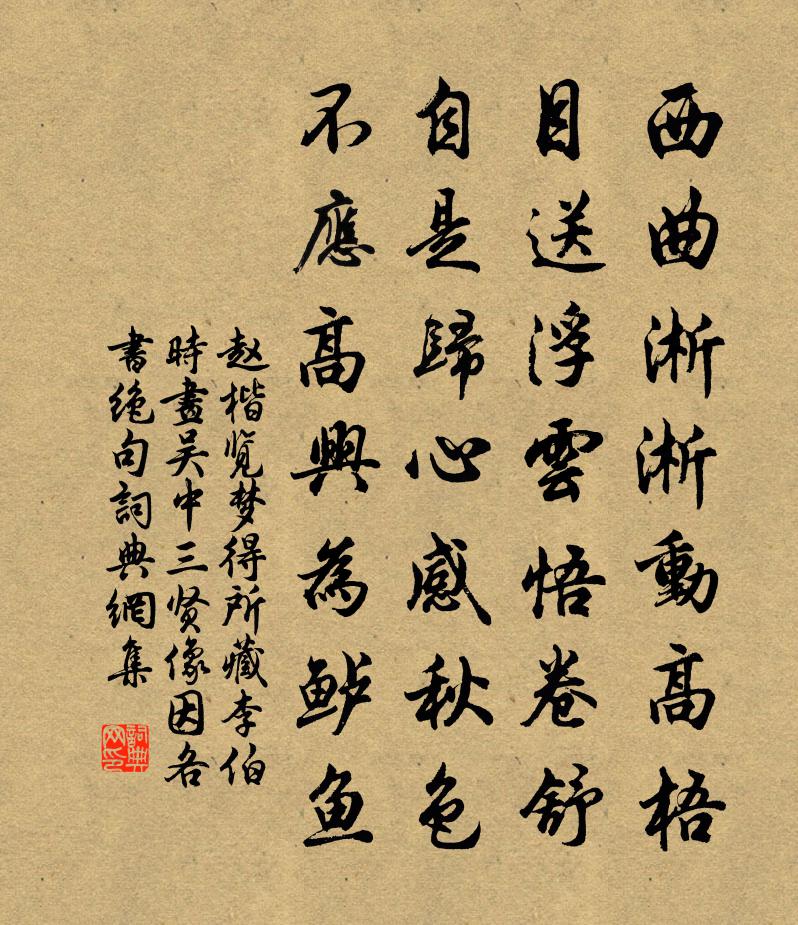 西曲淅淅動高梧
目送浮雲悟卷舒
自是歸心感秋色
不應高興為鲈鱼
赵楷览梦得所藏李伯
時畫吴中三贤像因各
書绝句詞典網集
詞典网印